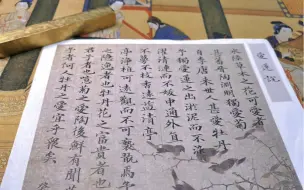 愛蓮說
水陸草木之花可愛者
甚蕃晉陶淵明獨愛菊
自李唐來世人甚愛牡丹
予獨愛蓮之出淤泥而不染
濯清漣而不妖中通外直
不蔓不枝香遠益清亭
亭淨植可遠觀而不可褻翫焉
之隱逸者也牡丹花之富貴者也
君子者也噫菊之愛陶後鮮有聞
者何人牡丹之愛宜乎眾矣